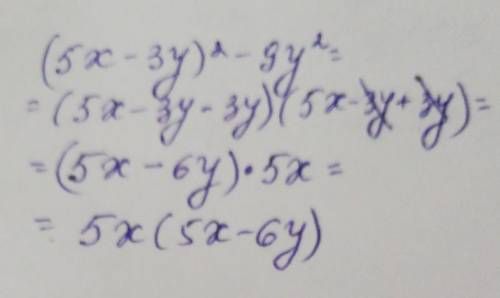 (5x - 3y)² - 9y² =
= (5x - 3y - 3y)(5x - 3y + 3y) =
= (5x - 6y) · 5x =
= 5x(5x - 6y)